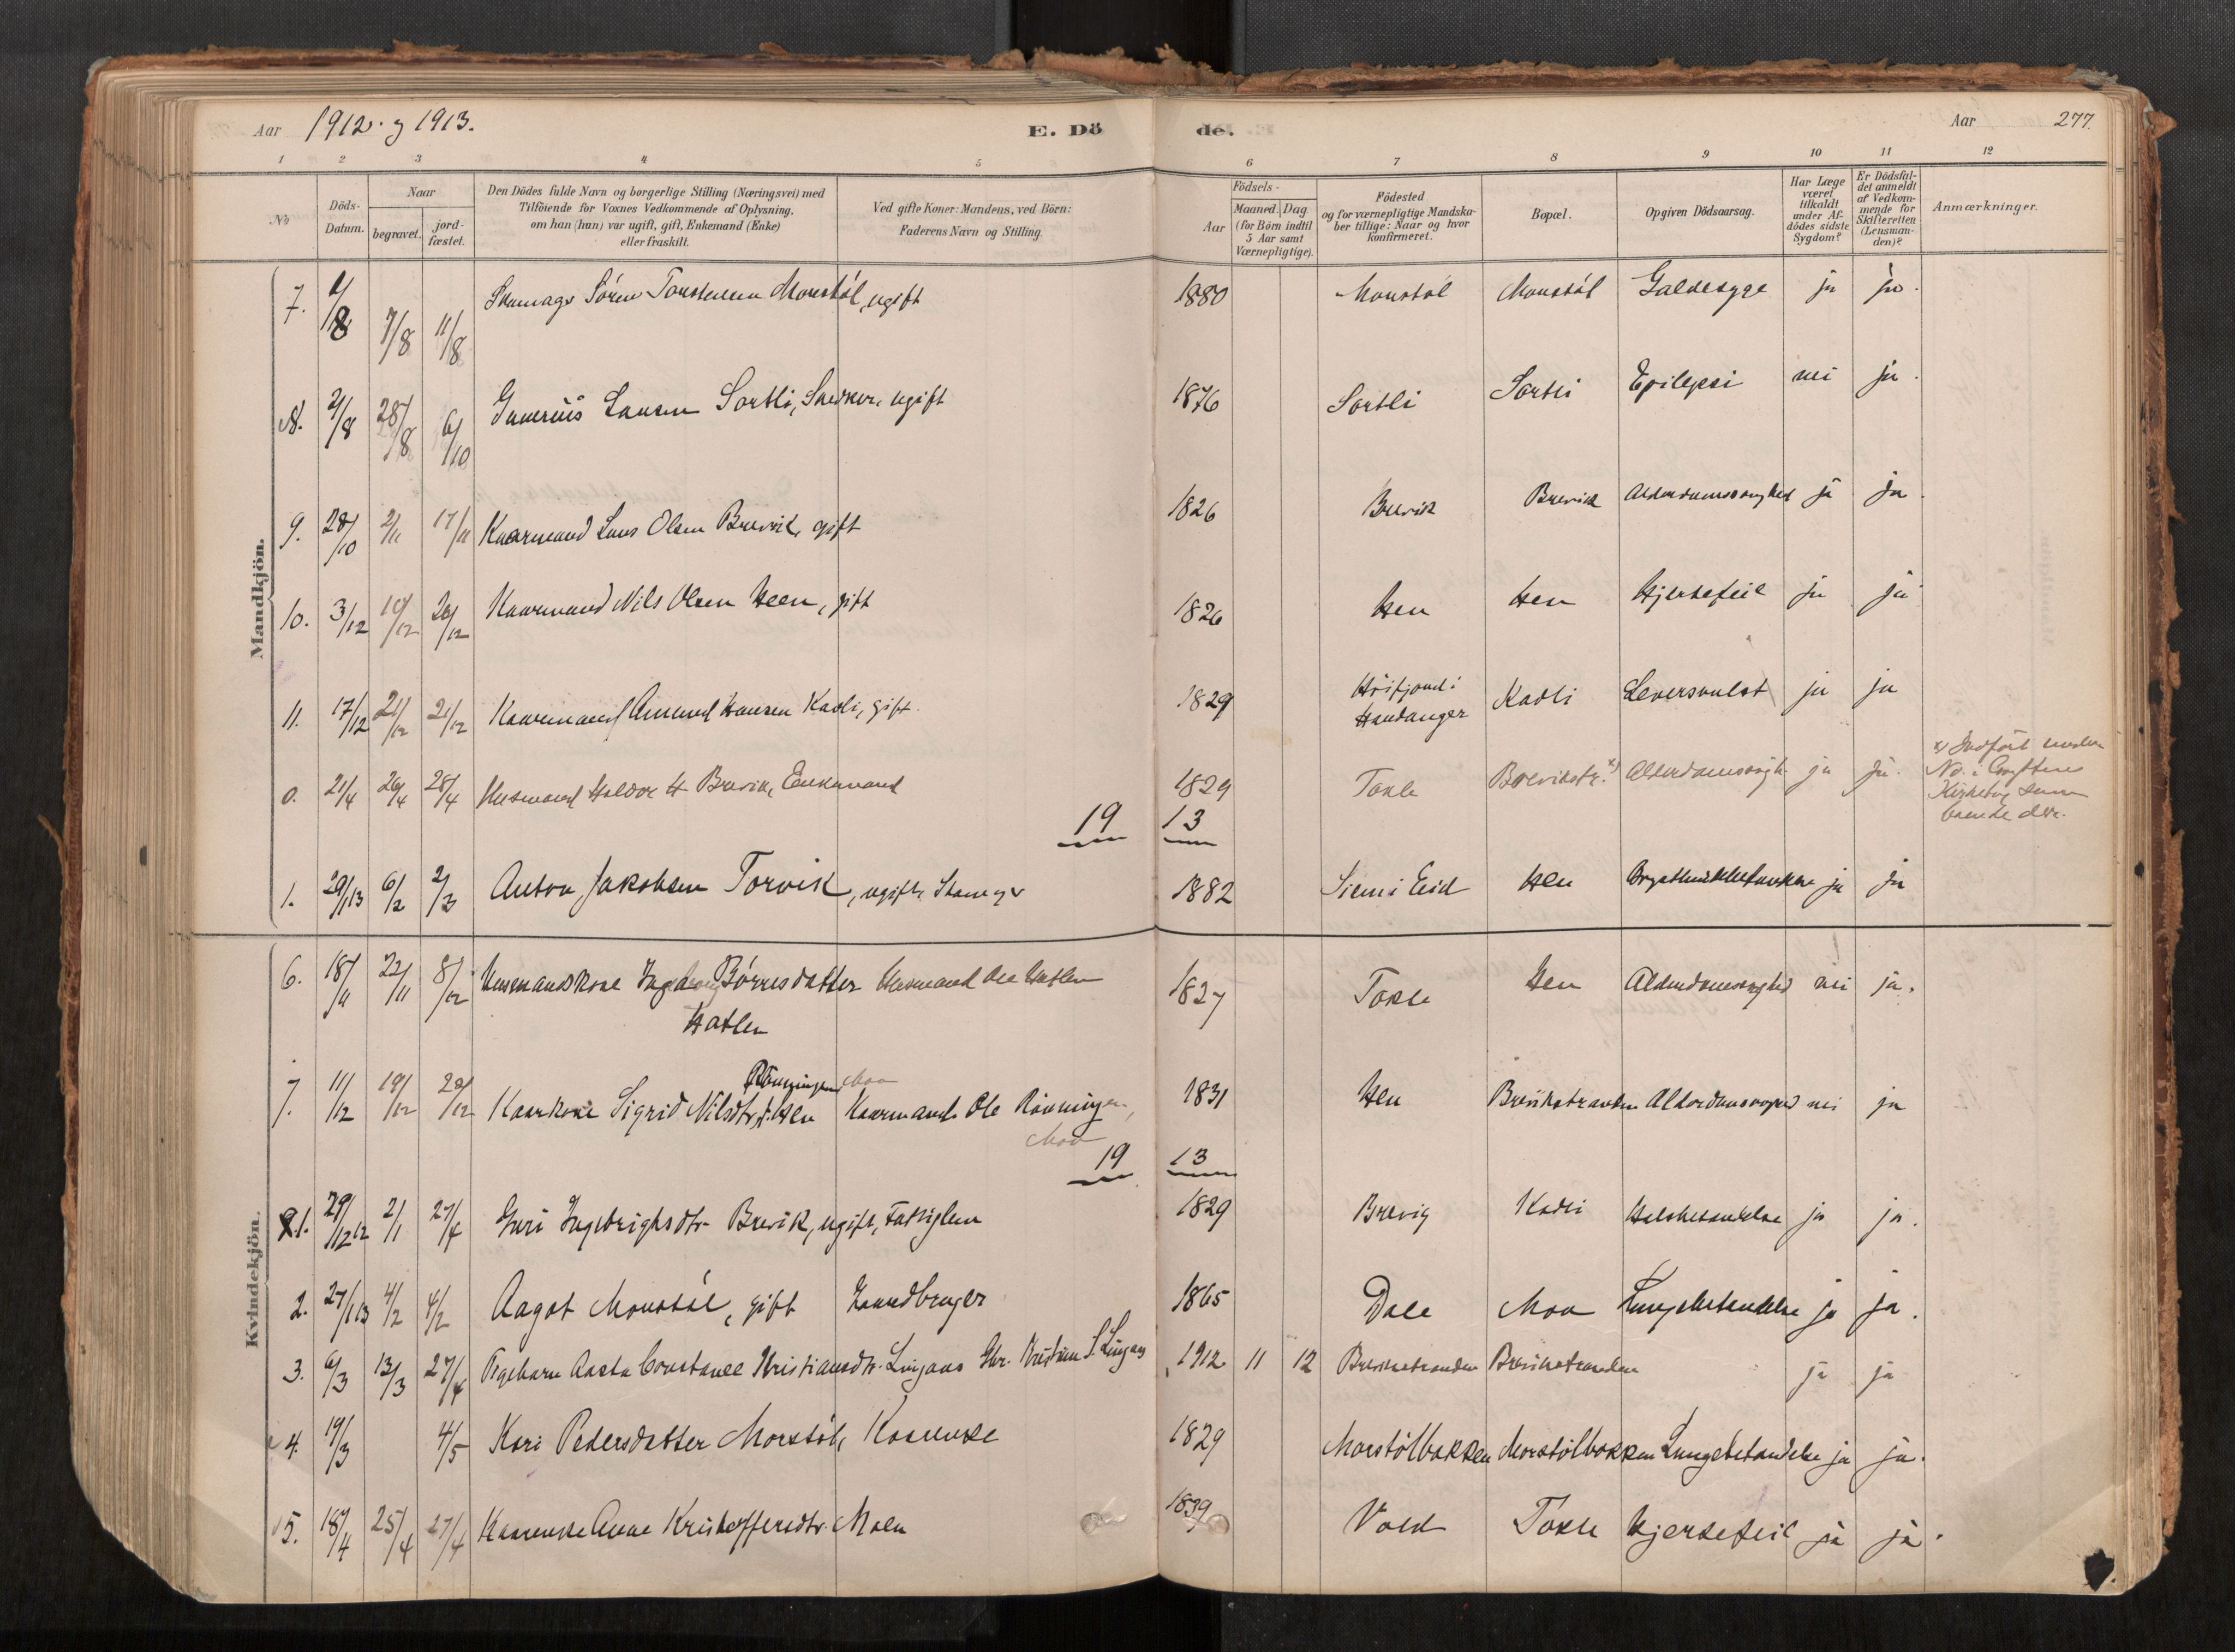 Aar 1912 og 1913.
E. Dö de.
Aar 277.
1 2 3 4 5 6 7 8 9 10 11 12
No
Döds-Datum.
Naar
begravet.
jord-fæstet.
Den Dödes fulde Navn og borgerlige Stilling (Næringsvei) med
Tilföiende for Voxnes Vedkommende af Oplysning,
om han (hun) var ugift, gift, Enkemand (Enke)
eller fraskilt.
Ved gifte Koner: Mandens, ved Börn:
Faderens Navn og Stilling.
Aar
Födsels-
Maaned. Dag
(for Börn indtil
5 Aar samt
Værnepligtige).
Födested
og for værnepligtige Mandska-
ber tillige: Naar og hvor
konfirmeret.
Bopæl.
Opgiven Dödsaarsag.
Har Læge
været
tilkaldt
under Af-
dödes sidste
Sygdom?
Er Dödsfal-
det anmeldt
af Vedkom-
mende for
Skifteretten
(Lensman-
den)?
Anmærkninger.
Mandkjön.
7. 1/8 7/8 11/8 Sören Torstensen Monstöl, ugift 1880 Monstöl Monstöl Galdesyge ja ja.
8. 21/8 28/8 6/10 Larsen Sortli, Snedker, ugift 1876 Sortli Sortli Epilepsi nei ja.
9. 28/10 2/11 17/11 Kaarmand Lars Olsen Brevik, gift 1826 Brevik Brevik Alderdomssvaghed ja ja.
10. 3/12 10/12 20/12 Kaarmand Nils Olsen Heen, gift 1826 Hen Hen Hjertefeil ja ja
11. 17/12 21/12 21/12 Kaarmand Amund Hansen Kadli, gift. 1829 Höifjord i Hardanger Kadli Leversvulst ja ja
0. 21/4 26/4 28/4 Husmand Haldor H Brevik, Enkemand 1829 Tokle Brevikstr. x) Alderdomssvagh. ja ja.
x) Indført under
No. i
19 13
1. 29/1 13 6/2 2/3 Anton Jakobsen Torvik, ugift, 1882 Hen Brysthindebetændelse ja ja
6. 18/11 22/11 8/12 Husmandskone Ingeborg Börresdatter Husmand Ole Hatlen 1827 Tokle Hen Alderdomssvaghed nei ja.
Hatlen
Rönningen Moa
7. 11/12 19/12 28/12 Kaarkone Sigrid Nilsdtr. Hen Kaarmand Ole Rönningen, 1831 Hen Brevikstranden Alderdomssvaghed nei ja
Moa
19 13
Kvindekjön.
1. 29/12 12 2/1 27/4 Guri Ingebrigtsdtr. Brevik, ugift, Fattiglem 1829 Brevig Kadli Halsbetændelse ja ja.
2. 27/1 13 4/2 4/2 Aagot Monstöl, gift Gaardbruger 1865 Dale Moa Lungebetændelse ja ja.
3. 6/3 13/3 27/4 Pigebarn Aasta Constance Kristiansdtr. Lingaas Gbr. Kristian S. Lingaas 1912 11 12 Brevikstranden Brevikstranden ja ja
4. 19/3 4/5 Kari Pedersdatter Morstöl, Kaarenke 1829 Morstölbakken Morstölbakken Lungebetændelse ja ja.
5. 18/4 25/4 27/4 Kaarenke Anne Kristoffersdtr. Moen 1839 Vold Tokle Hjertefeil ja ja.